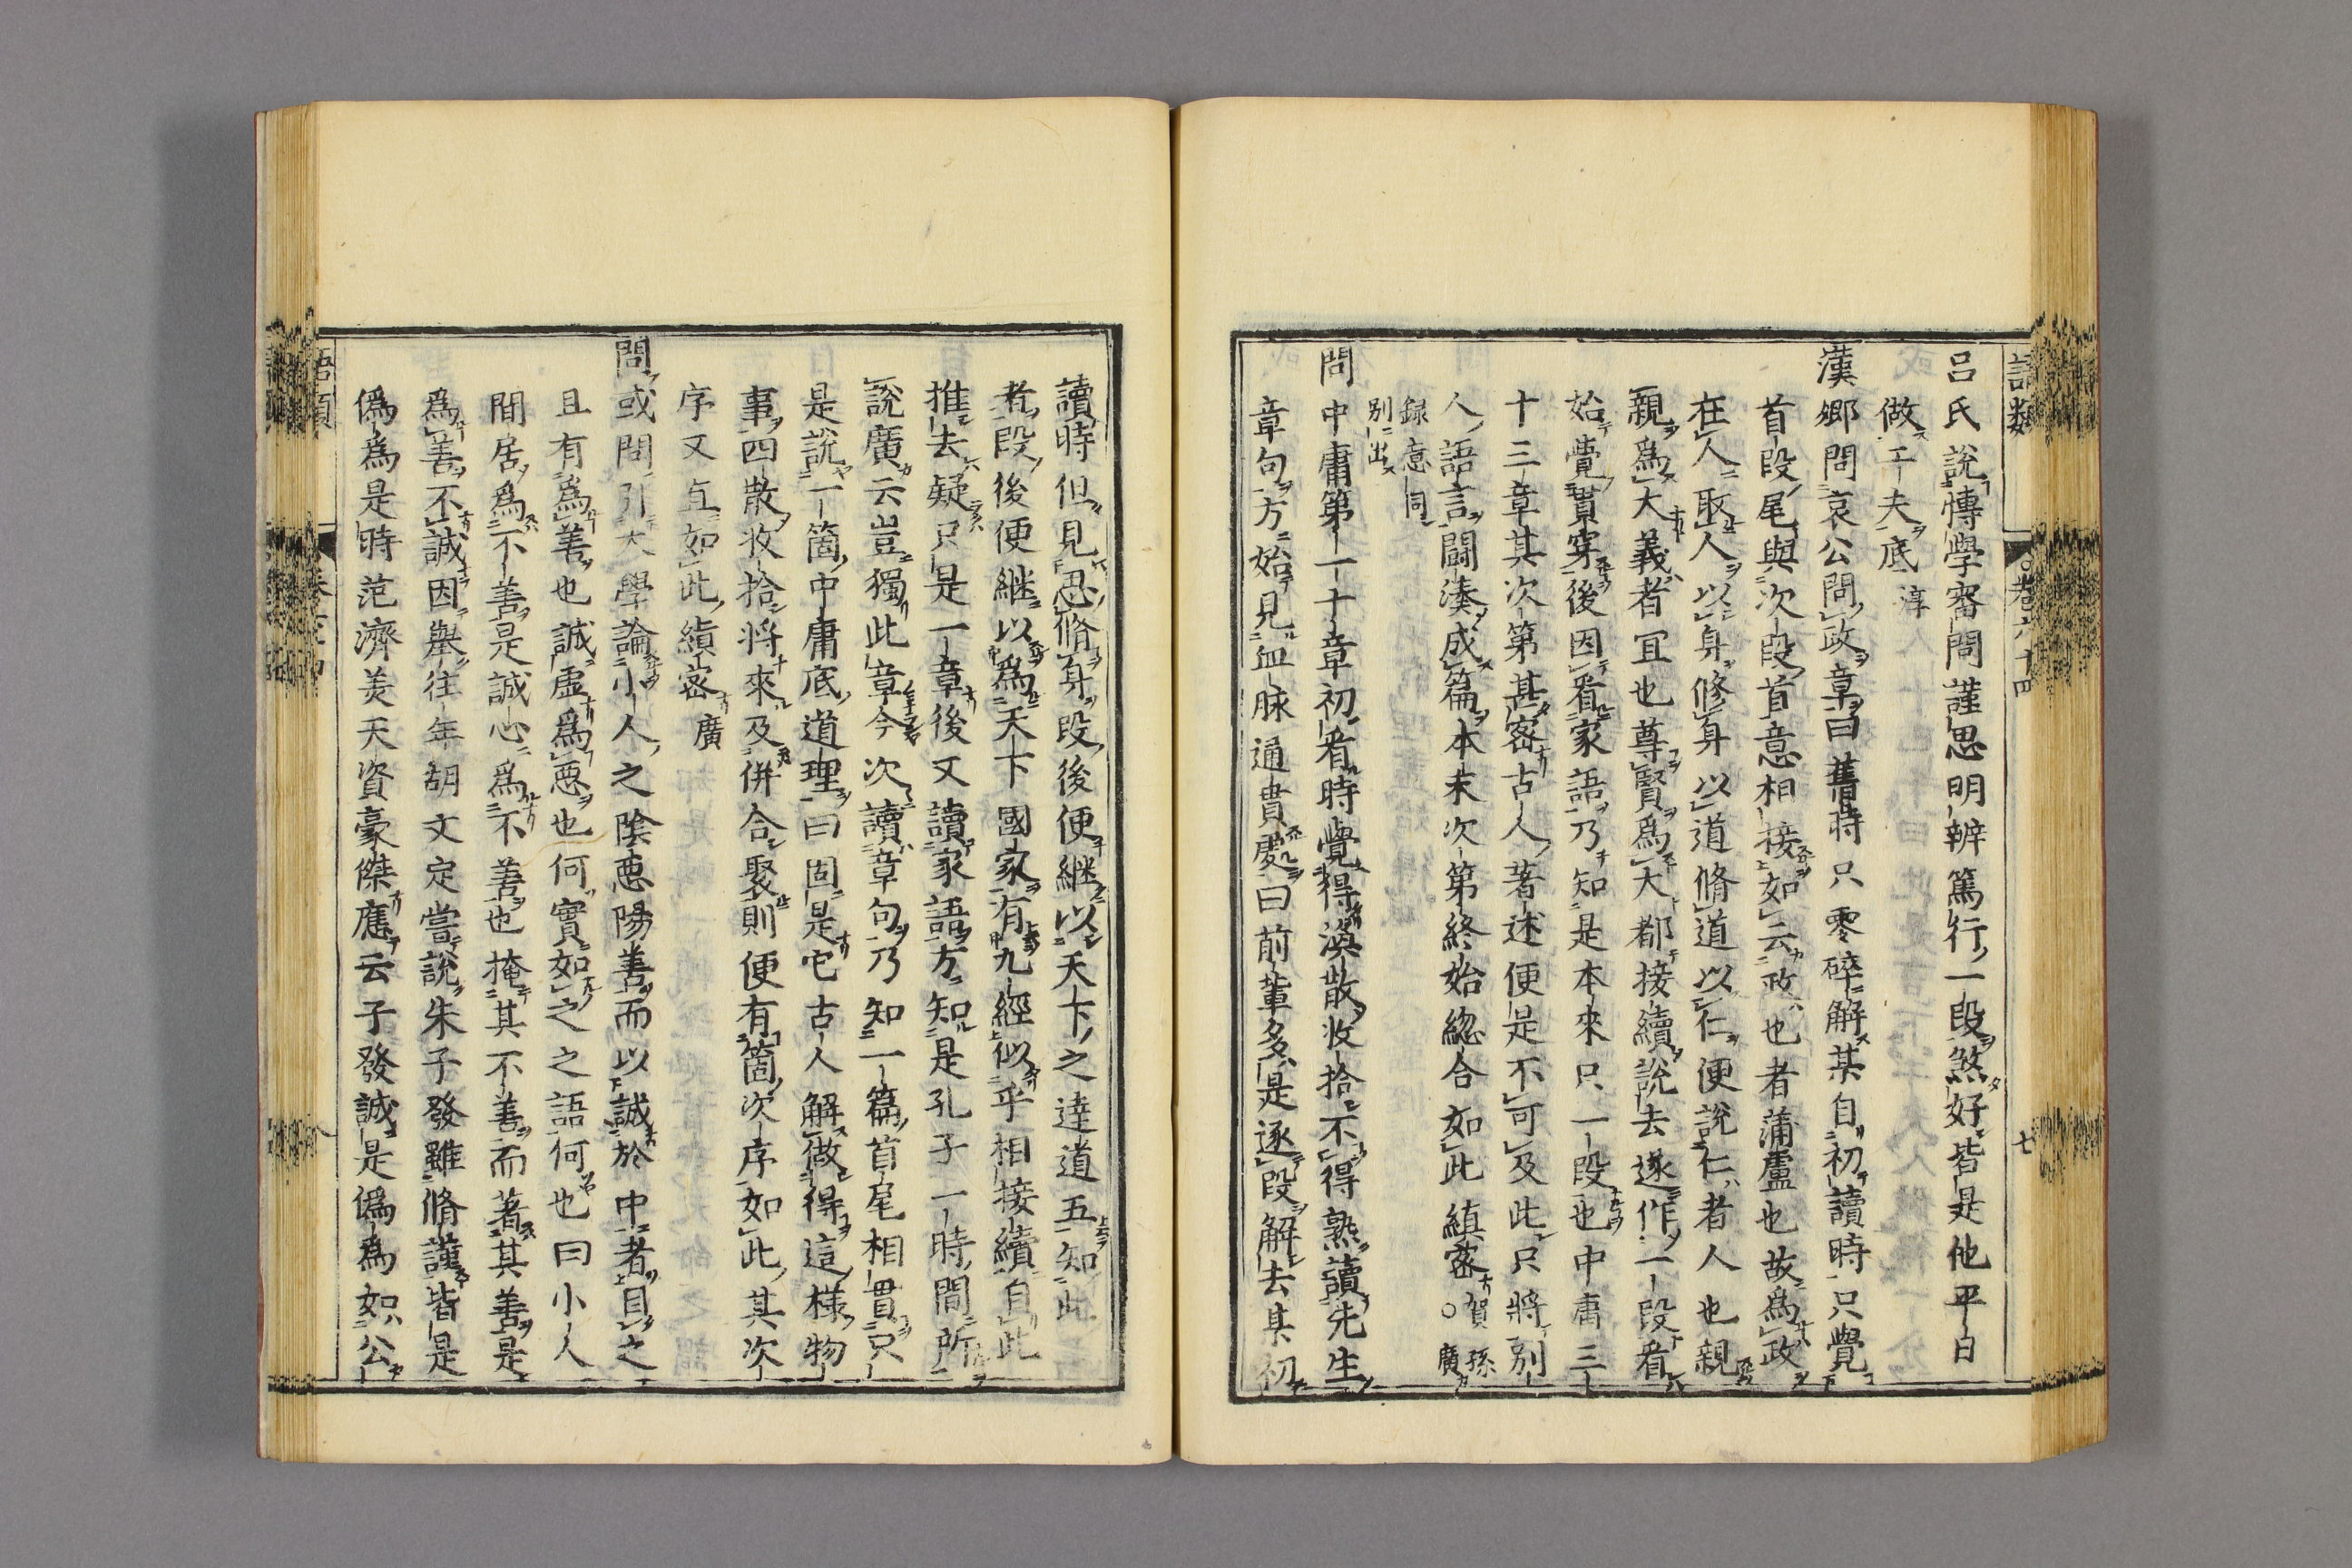 語類
卷六十四
七
呂氏說愽學審問謹思明辨篤行一段煞好皆是他平日
做工夫底 淳
漢卿問哀公問政章曰舊時只零碎解某自初讀時只覺
首段尾與次段首意相接如云政也者蒲盧也故爲政
在人取人以身修身以道脩道以仁便說仁者人也親
親爲大義者宜也尊賢爲大都接續說去遂作一段看
始覺貫穿後因看家語乃知是本來只一段也中庸三
十三章其次第甚密古人著述便是不可及此只將別
人語言鬬湊成篇本末次第終始緫合如此縝密 賀孫 ○廣
録意同
別出
問中庸第二十章初看時覺得渙散收拾不得熟讀先生
章句方始見血脉通貫處曰前輩多是逐段解去某初
讀時但見思脩身段後便継以天下之達道五知此三
者段後便継以爲天下國家有九經似乎相接續自此
推去疑只是一章後又讀家語方知是孔子一時間所
說廣云豈獨此章今次讀章句乃知一篇首尾相貫只
是說一箇中庸底道理曰固是它古人解做得這樣物
事四散收拾將來及併合聚則便有箇次序如此其次
序又直如此縝密 廣
問或問引大學論小人之陰惡陽善而以誠於中者目之
且有爲善也誠虛爲惡也何實如之之語何也曰小人
閒居爲不善是誠心爲不善也掩其不善而著其善是
爲善不誠因舉往年胡文定嘗說朱子發雖脩謹皆是
僞爲是時范濟美天資豪傑應云子發誠是僞爲如公
語類